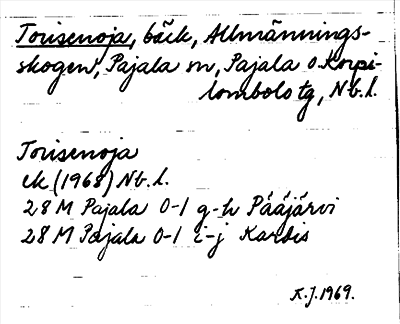 Torisenoja, bäck, Allmännings-
skogen, Pajala sn, Pajala o Korpi-
lombolo tg, Nb. l.
Torisenoja
ek (1968) Nb. l.
28 M Pajala 0-1 g-h Pääjärvi
28 M Pajala 0-1 i-j Kardis
K.J. 1969.